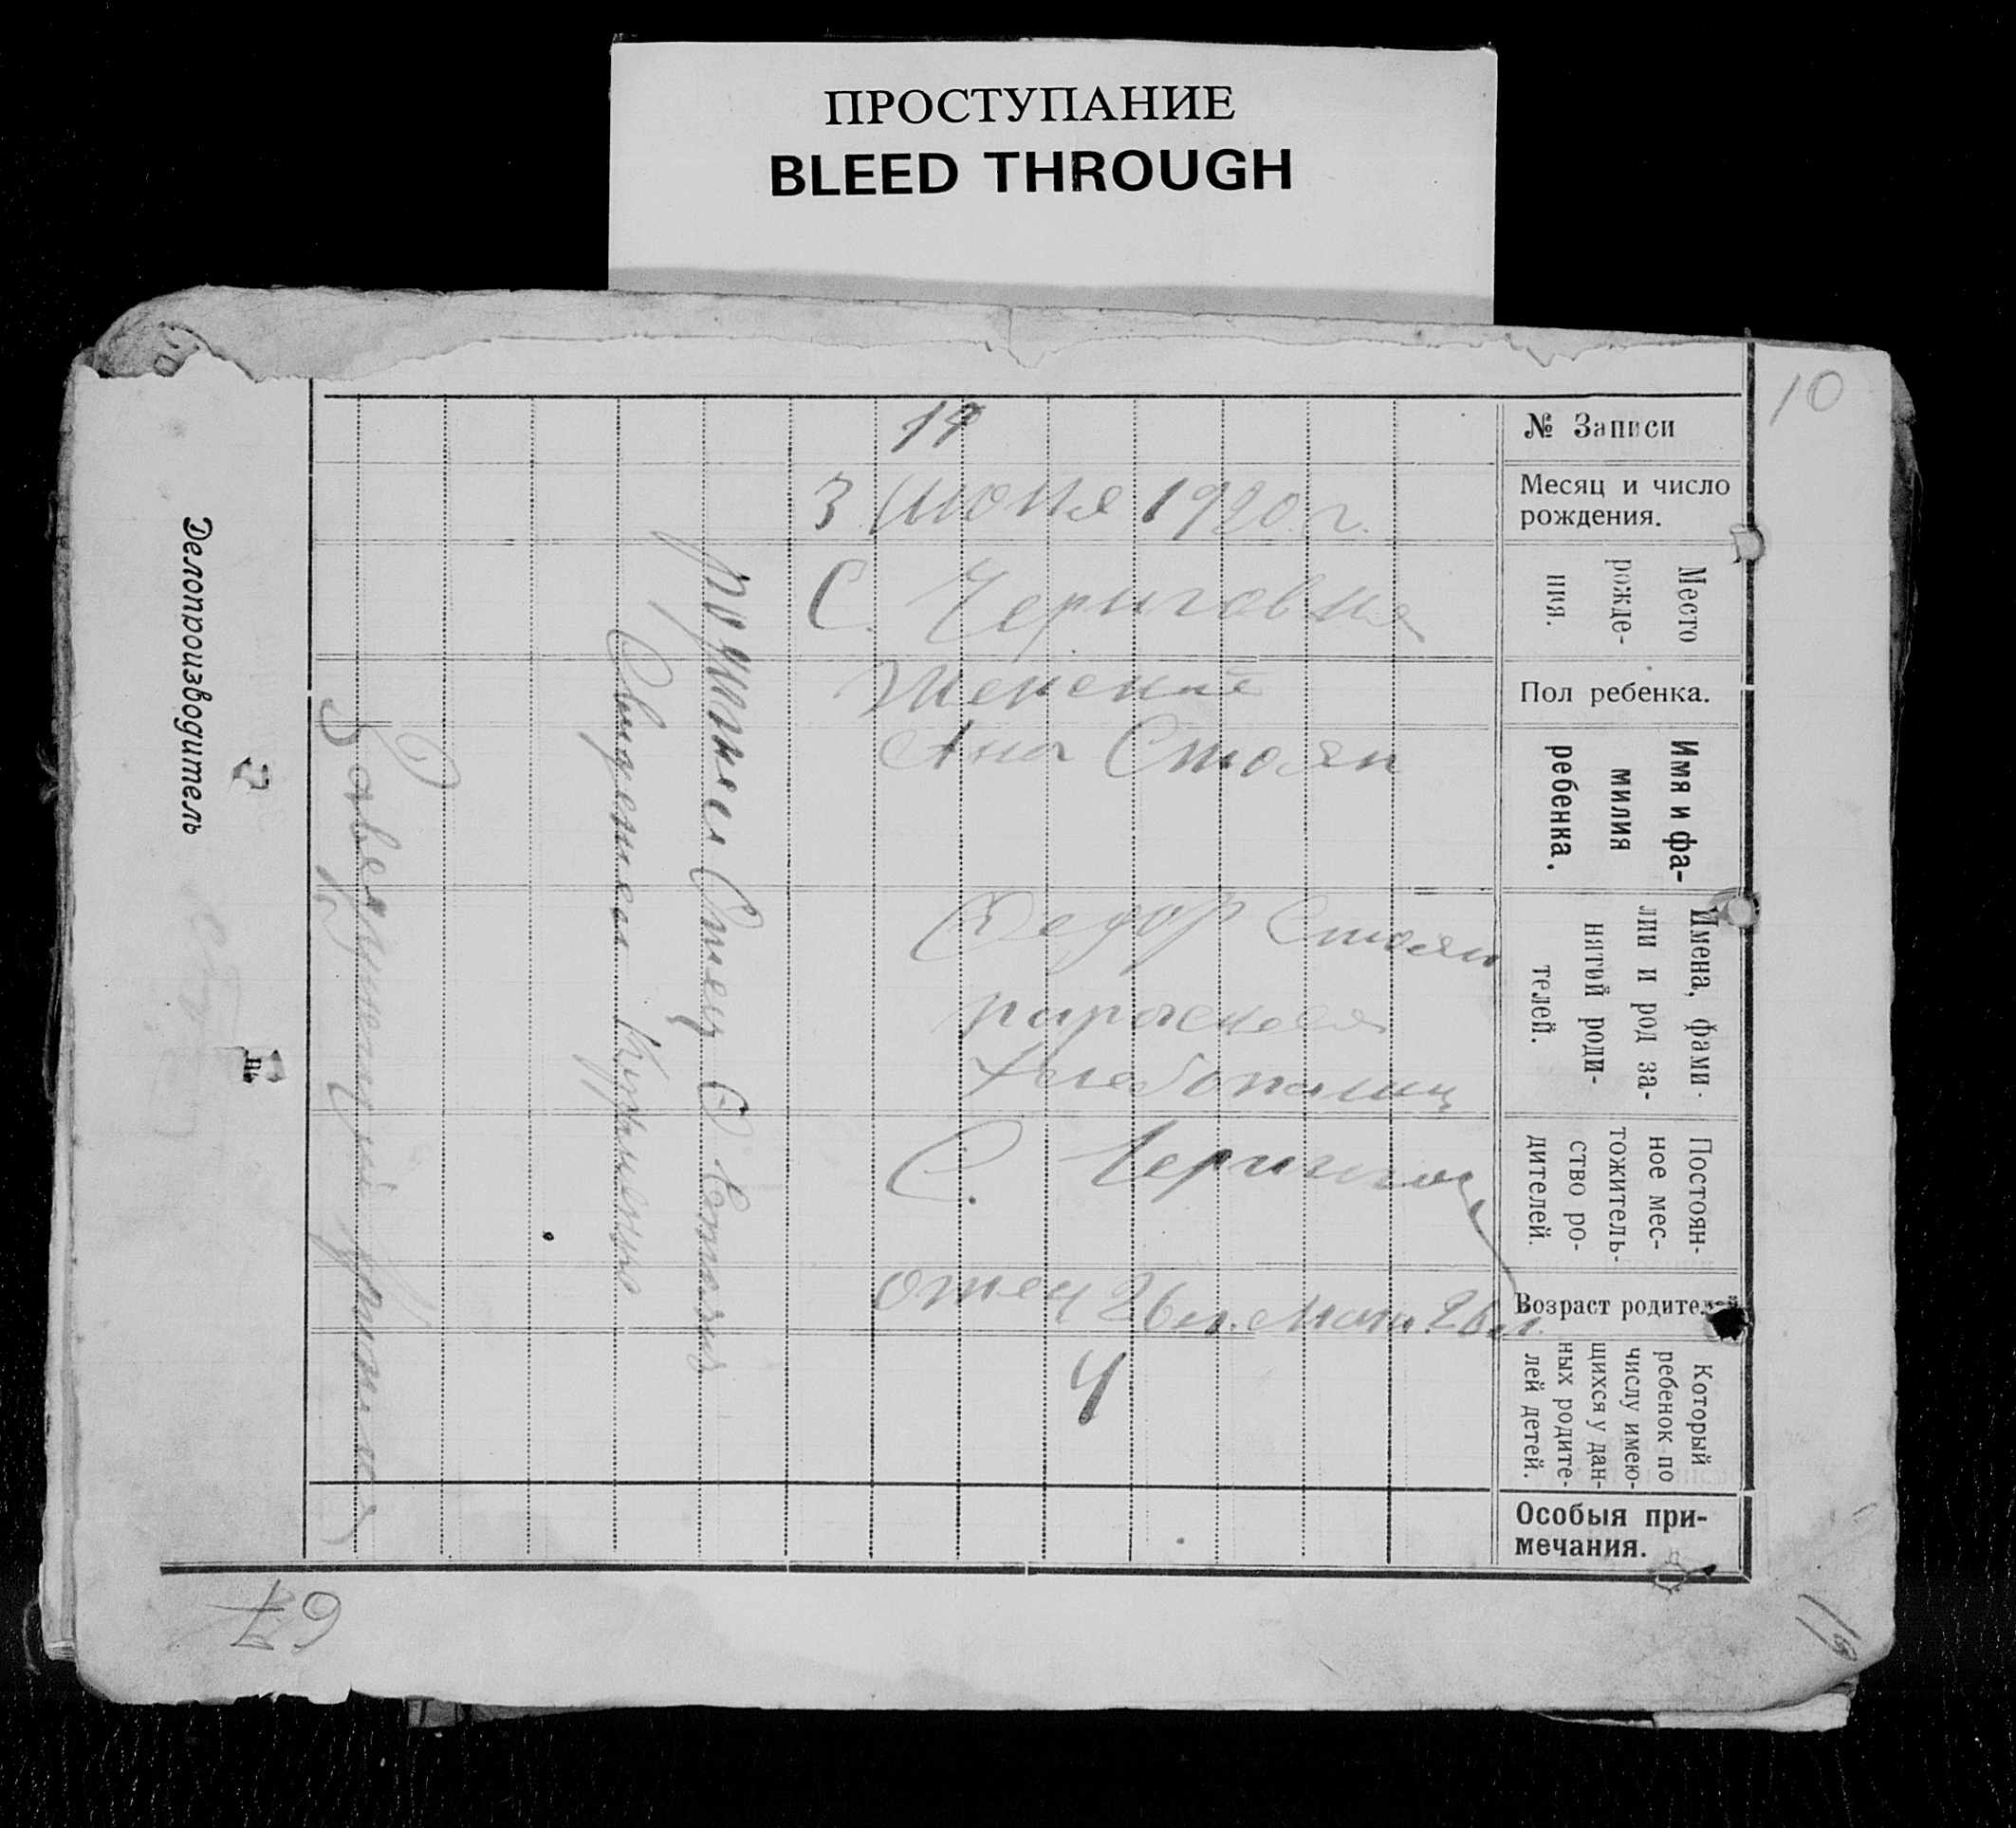 ПРОСТУПАНИЕ
BLEED THROUGH
10
№ Записи
Месяц и число
рождения.
3 июня 1920 г.
Место
рожде-
ния.
С. Черниговка
Пол ребенка.
Женский
Имя и фа-
милия
ребенка.
Анна Стоян
Имена, фами-
лии и род за-
нятий роди-
телей.
Федор Стоян
параскева
хлебопашец
Постоян-
ное мес-
тожитель-
ство ро-
дителей.
С.
Возраст родителей
отец 26 л. мать 26 л.
Который
ребенок по
числу имею-
щихся у дан-
ных родите-
лей детей.
4
Особыя при-
мечания.
родители Отец Ф Стоян
Свидетели
Заведующий
Делопроизводитель
67